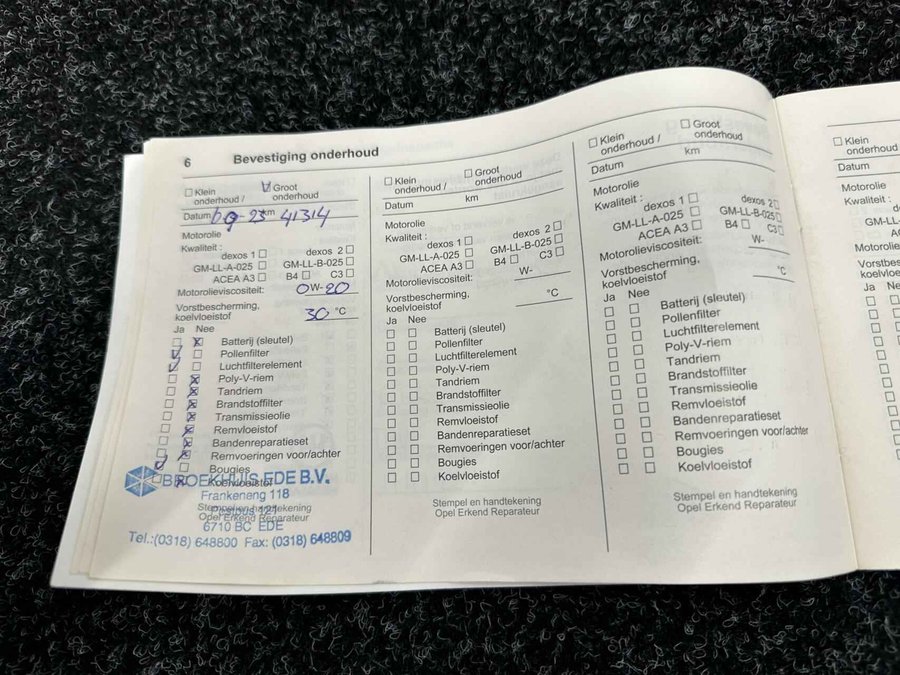 6 Bevestiging onderhoud
☐ Klein onderhoud / ☑ Groot onderhoud
Datum km 41314
Motorolie
Kwaliteit :
dexos 1 ☐ dexos 2 ☐
GM-LL-A-025 ☐ GM-LL-B-025 ☐
ACEA A3 ☐ B4 ☐ C3 ☐
Motorolieviscositeit: 0W-20
Vorstbescherming,
koelvloeistof 30 °C
Ja Nee
☐ ☒ Batterij (sleutel)
☑ ☐ Pollenfilter
☑ ☐ Luchtfilterelement
☐ ☒ Poly-V-riem
☐ ☒ Tandriem
☐ ☒ Brandstoffilter
☐ ☒ Transmissieolie
☐ ☒ Remvloeistof
☐ ☒ Bandenreparatieset
☐ ☒ Remvoeringen voor/achter
☑ ☐ Bougies
☒ Koelvloeistof
BROEKHUIS EDE B.V.
Frankeneng 118
Stempel en handtekening
Postbus 121
Opel Erkend Reparateur
6710 BC EDE
Tel.:(0318) 648800 Fax: (0318) 648809
☐ Klein onderhoud / ☐ Groot onderhoud
Datum km
Motorolie
Kwaliteit :
dexos 1 ☐ dexos 2 ☐
GM-LL-A-025 ☐ GM-LL-B-025 ☐
ACEA A3 ☐ B4 ☐ C3 ☐
Motorolieviscositeit: W-
Vorstbescherming,
koelvloeistof °C
Ja Nee
☐ ☐ Batterij (sleutel)
☐ ☐ Pollenfilter
☐ ☐ Luchtfilterelement
☐ ☐ Poly-V-riem
☐ ☐ Tandriem
☐ ☐ Brandstoffilter
☐ ☐ Transmissieolie
☐ ☐ Remvloeistof
☐ ☐ Bandenreparatieset
☐ ☐ Remvoeringen voor/achter
☐ ☐ Bougies
☐ ☐ Koelvloeistof
Stempel en handtekening
Opel Erkend Reparateur
☐ Klein onderhoud / ☐ Groot onderhoud
Datum km
Motorolie
Kwaliteit :
dexos 1 ☐ dexos 2 ☐
GM-LL-A-025 ☐ GM-LL-B-025 ☐
ACEA A3 ☐ B4 ☐ C3 ☐
Motorolieviscositeit: W-
Vorstbescherming,
koelvloeistof °C
Ja Nee
☐ ☐ Batterij (sleutel)
☐ ☐ Pollenfilter
☐ ☐ Luchtfilterelement
☐ ☐ Poly-V-riem
☐ ☐ Tandriem
☐ ☐ Brandstoffilter
☐ ☐ Transmissieolie
☐ ☐ Remvloeistof
☐ ☐ Bandenreparatieset
☐ ☐ Remvoeringen voor/achter
☐ ☐ Bougies
☐ ☐ Koelvloeistof
Stempel en handtekening
Opel Erkend Reparateur
☐ Klein
onderhoud /
Datum
Motorolie
Kwaliteit :
Ja Nee